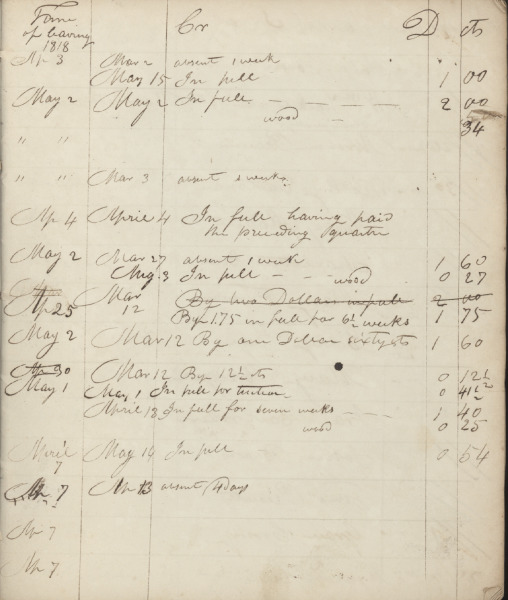 Time
of leaving Cr D cts
1818
Ap 3 Mar 2 absent 1 week
May 15 In full 1 00
May 2 May 2 In full - - - - 2 00
wood - 34
" "
" " Mar 3 absent 2 weeks
Ap 4 April 4 In full having paid
the preceding quarter
May 2 Mar 27 absent 1 week 1 60
Aug 3 In full - - wood 0 27
Ap 25 Mar 12 By two Dollars in full 2 00
By 1.75 in full for 6½ weeks 1 75
May 2 Mar 12 By one Dollar sixty cts 1 60
Ap 30 Mar 12 By 12½ cts 0 12½
May 1 May 1 In full for tuition 0 41½
April 18 In full for seven weeks - - - 1 40
wood 0 25
April 7 May 14 In full - 0 54
Ap 7 Ap 13 absent 4 days
Ap 7
Ap 7